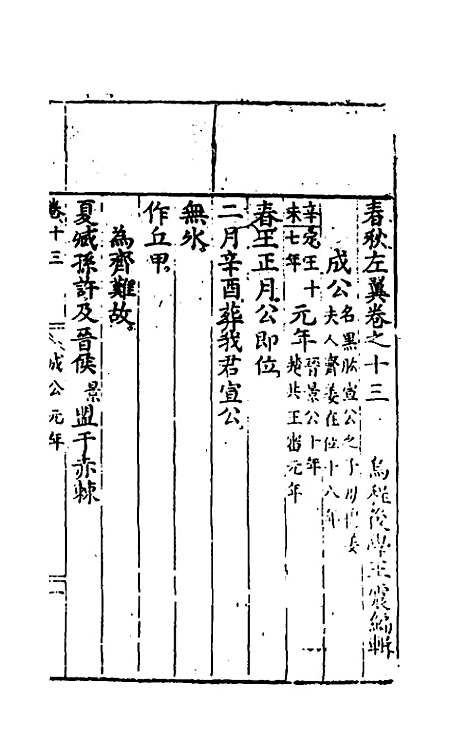 春秋左翼卷之十三　烏程後學王震編輯
成公名黑肱宣公之子母穆姜
夫人齊姜在位十八年
辛未定王十七年　元年晉景公十年
楚共王審元年
春王正月公即位
二月辛酉葬我君宣公
無氷
作丘甲
為齊難故
夏臧孫許及晉侯景盟于赤棘
卷十三　成公元年